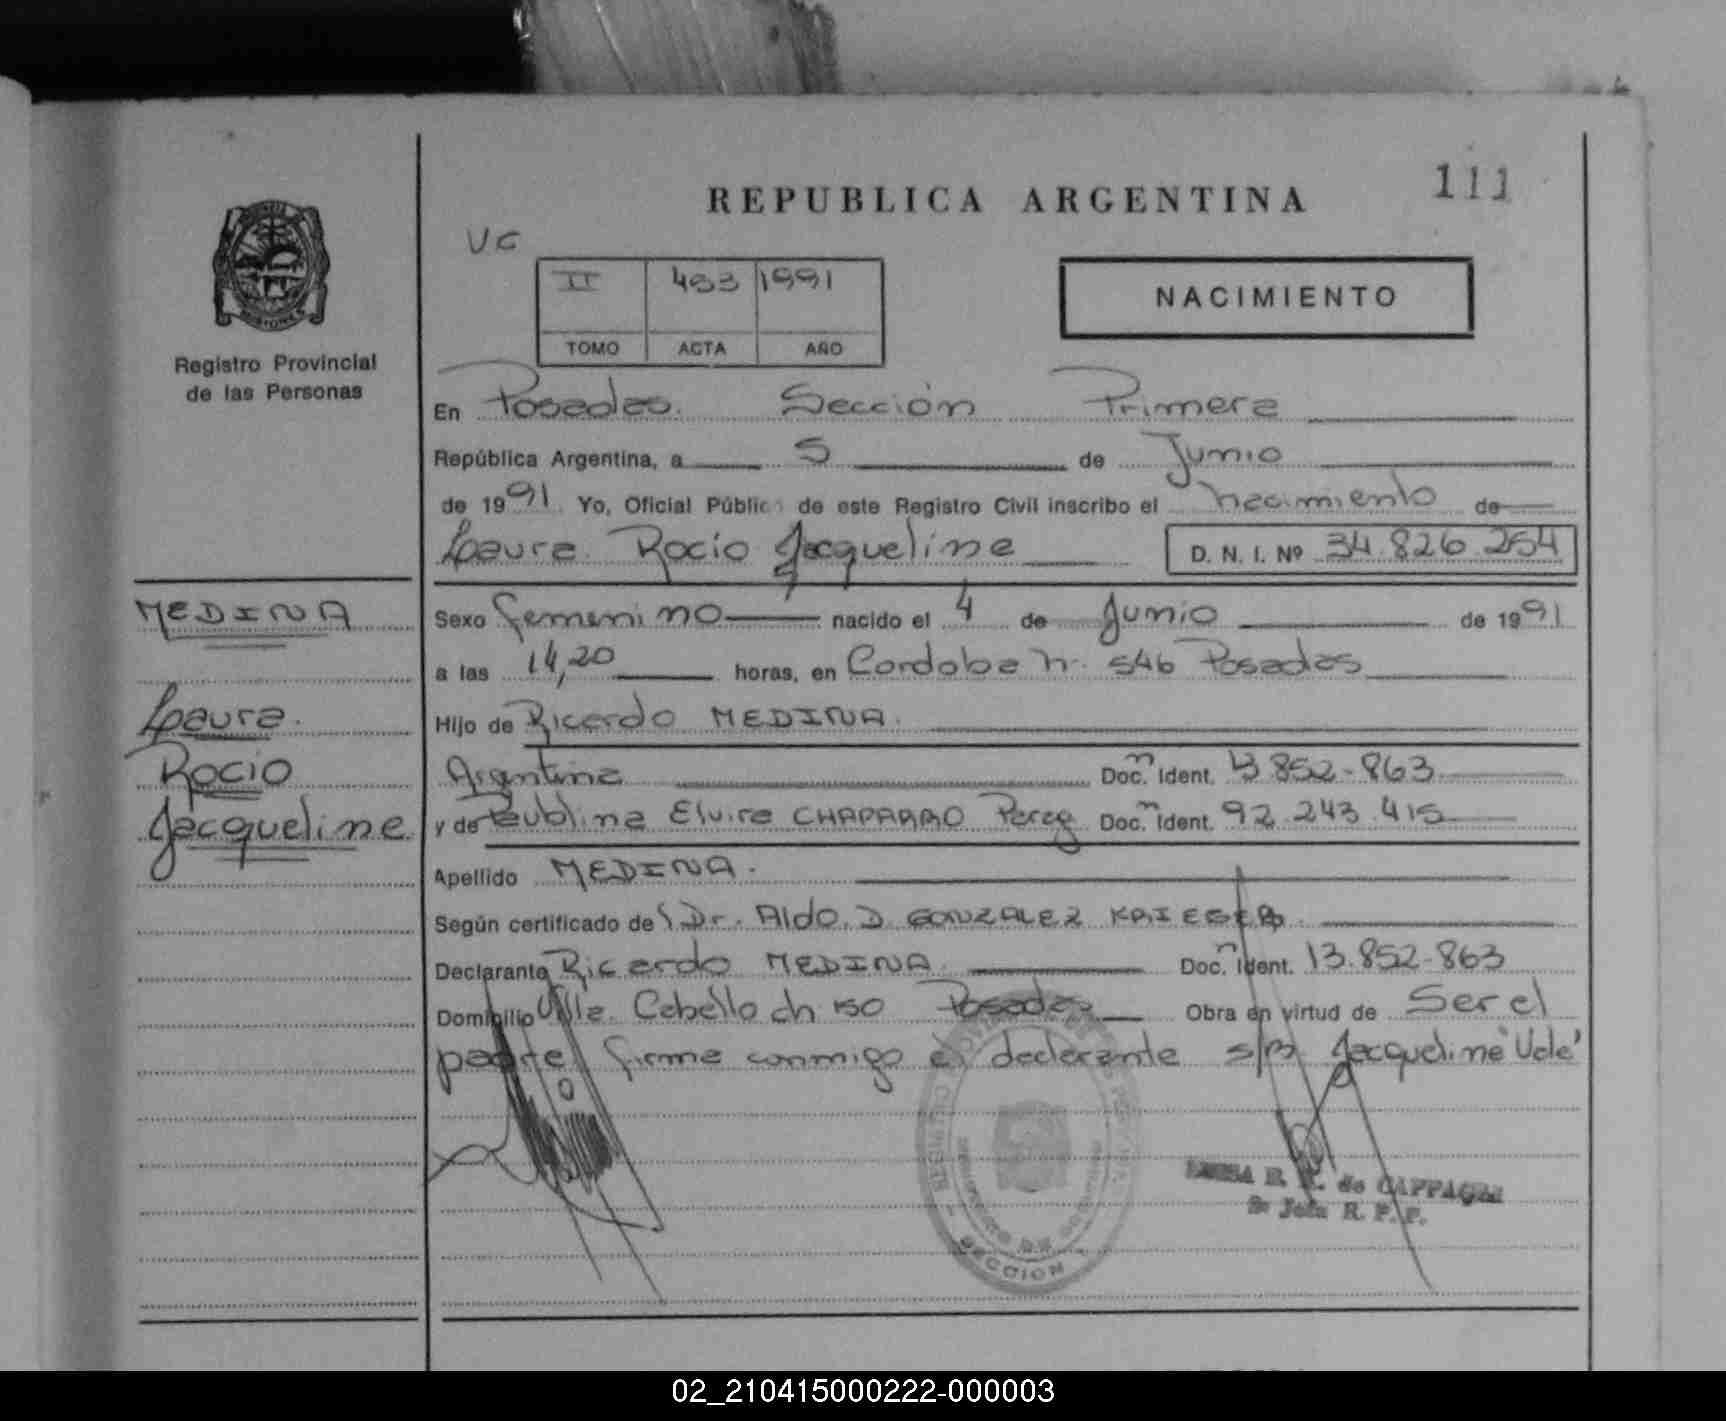 REPUBLICA ARGENTINA
111
PROVINCIA DE
MISIONES
Registro Provincial
de las Personas
VC
II 493 1991
TOMO ACTA AÑO
NACIMIENTO
En Posadas. Sección Primera
República Argentina, a 5 de Junio
de 1991. Yo, Oficial Público de este Registro Civil inscribo el nacimiento de
Laura Rocío Jacqueline D. N. I. Nº 34.826.254
MEDINA
Laura
Rocio
Jacqueline
Sexo femenino nacido el 4 de Junio de 1991
a las 14,20 horas, en Cordoba n. 546 Posadas
Hijo de Ricardo MEDINA.
Argentina Doc. n Ident. 13.852-863
y de Paublina Elvira CHAPARRO Parag Doc. n Ident. 92.243.415
Apellido MEDINA.
Según certificado de Dr. Aldo. D. GONZALEZ KRIEGER.
Declarante Ricardo MEDINA. Doc. n Ident. 13.852-863
Domicilio Villa Cabello ch 150 Posadas Obra en virtud de Ser el
padre firma conmigo el declarante s/r Jacqueline "Vale"
SECCION
de CAPPAGLI
R. P. P.
02_210415000222-000003